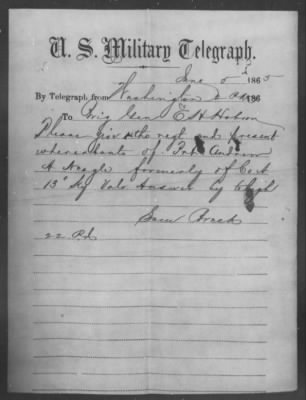 U. S. Military Telegraph.
June 5 1865
By Telegraph from Washington 186
To Brig Gen E H Hobson
Please give the regt and present
whereabouts of Andrew
A Nagle formerly of
13" Ky Vols Answer by
Saml Breck
22 Pd